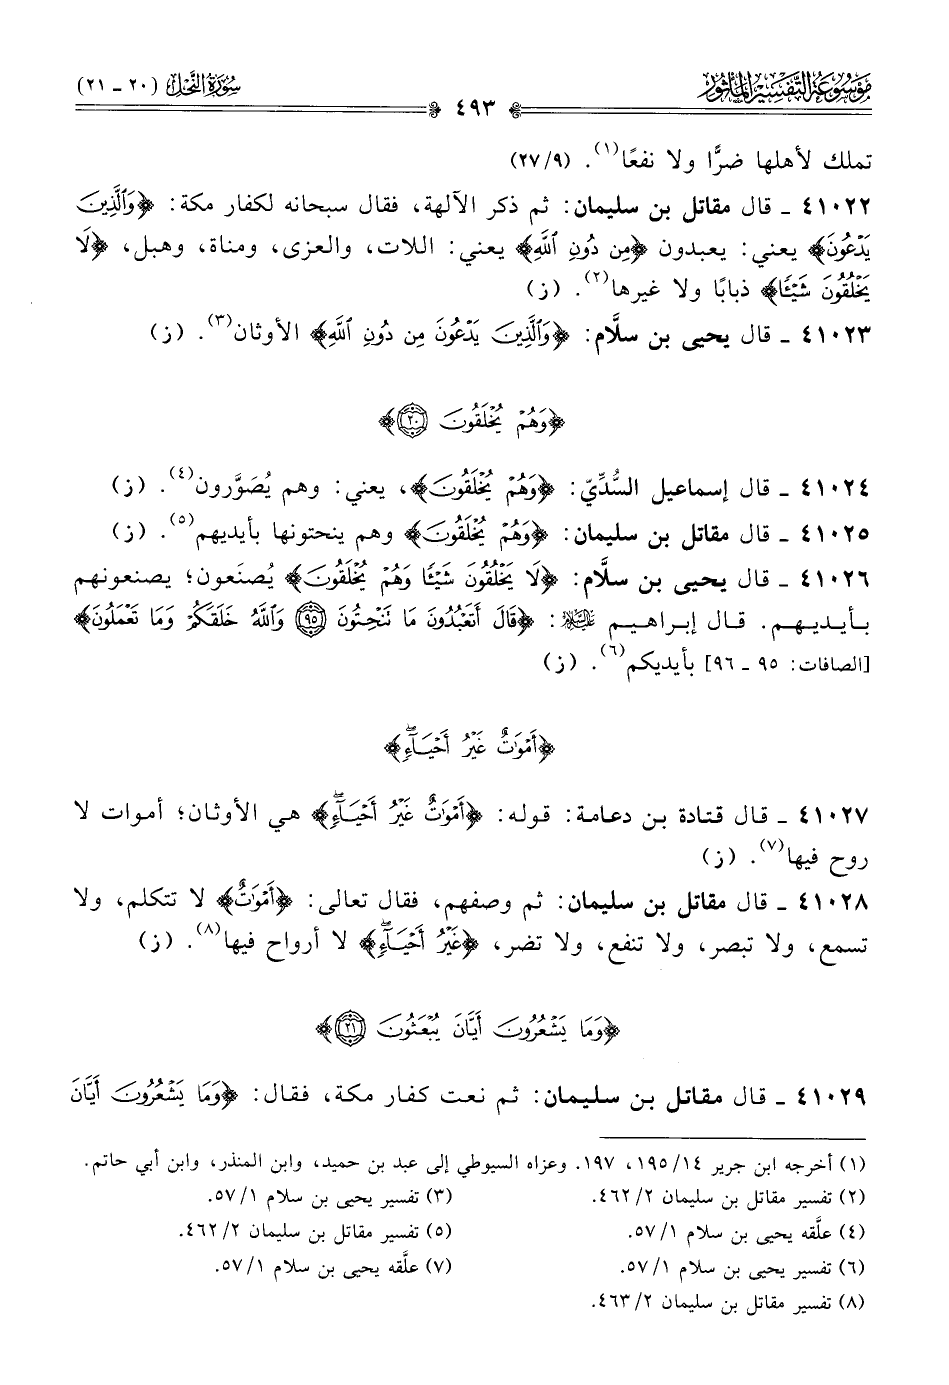 مَوْسُوعَةُ التَّفْسِيرِ المَأثُور
سُورَةُ النَّحْل (٢٠ - ٢١)
٤٩٣
تملك لأهلها ضرًّا ولا نفعًا(١). (٢٧/٩)
٤١٠٢٢ - قال مقاتل بن سليمان: ثم ذكر الآلهة، فقال سبحانه لكفار مكة: ﴿وَٱلَّذِينَ
يَدْعُونَ﴾ يعني: يعبدون ﴿مِن دُونِ ٱللَّهِ﴾ يعني: اللات، والعزى، ومناة، وهبل، ﴿لَا
يَخْلُقُونَ شَيْـًٔا﴾ ذبابًا ولا غيرها(٢). (ز)
٤١٠٢٣ - قال يحيى بن سلَّام: ﴿وَٱلَّذِينَ يَدْعُونَ مِن دُونِ ٱللَّهِ﴾ الأوثان(٣). (ز)
﴿وَهُمْ يُخْلَقُونَ ۝٢٠﴾
٤١٠٢٤ - قال إسماعيل السُّدِّيّ: ﴿وَهُمْ يُخْلَقُونَ﴾، يعني: وهم يُصَوَّرون(٤). (ز)
٤١٠٢٥ - قال مقاتل بن سليمان: ﴿وَهُمْ يُخْلَقُونَ﴾ وهم ينحتونها بأيديهم(٥). (ز)
٤١٠٢٦ - قال يحيى بن سلَّام: ﴿لَا يَخْلُقُونَ شَيْـًٔا وَهُمْ يُخْلَقُونَ﴾ يُصنَعون؛ يصنعونهم
بأيديهم. قال إبراهيم عليه السلام: ﴿قَالَ أَتَعْبُدُونَ مَا تَنْحِتُونَ ۝٩٥ وَٱللَّهُ خَلَقَكُمْ وَمَا تَعْمَلُونَ﴾
[الصافات: ٩٥ - ٩٦] بأيديكم(٦). (ز)
﴿أَمْوَٰتٌ غَيْرُ أَحْيَآءٍۖ﴾
٤١٠٢٧ - قال قتادة بن دعامة: قوله: ﴿أَمْوَٰتٌ غَيْرُ أَحْيَآءٍۖ﴾ هي الأوثان؛ أموات لا
روح فيها(٧). (ز)
٤١٠٢٨ - قال مقاتل بن سليمان: ثم وصفهم، فقال تعالى: ﴿أَمْوَٰتٌ﴾ لا تتكلم، ولا
تسمع، ولا تبصر، ولا تنفع، ولا تضر، ﴿غَيْرُ أَحْيَآءٍۖ﴾ لا أرواح فيها(٨). (ز)
﴿وَمَا يَشْعُرُونَ أَيَّانَ يُبْعَثُونَ ۝٢١﴾
٤١٠٢٩ - قال مقاتل بن سليمان: ثم نعت كفار مكة، فقال: ﴿وَمَا يَشْعُرُونَ أَيَّانَ
(١) أخرجه ابن جرير ١٤/ ١٩٥، ١٩٧. وعزاه السيوطي إلى عبد بن حميد، وابن المنذر، وابن أبي حاتم.
(٢) تفسير مقاتل بن سليمان ٢/ ٤٦٢.
(٣) تفسير يحيى بن سلام ١/ ٥٧.
(٤) علَّقه يحيى بن سلام ١/ ٥٧.
(٥) تفسير مقاتل بن سليمان ٢/ ٤٦٢.
(٦) تفسير يحيى بن سلام ١/ ٥٧.
(٧) علَّقه يحيى بن سلام ١/ ٥٧.
(٨) تفسير مقاتل بن سليمان ٢/ ٤٦٣.